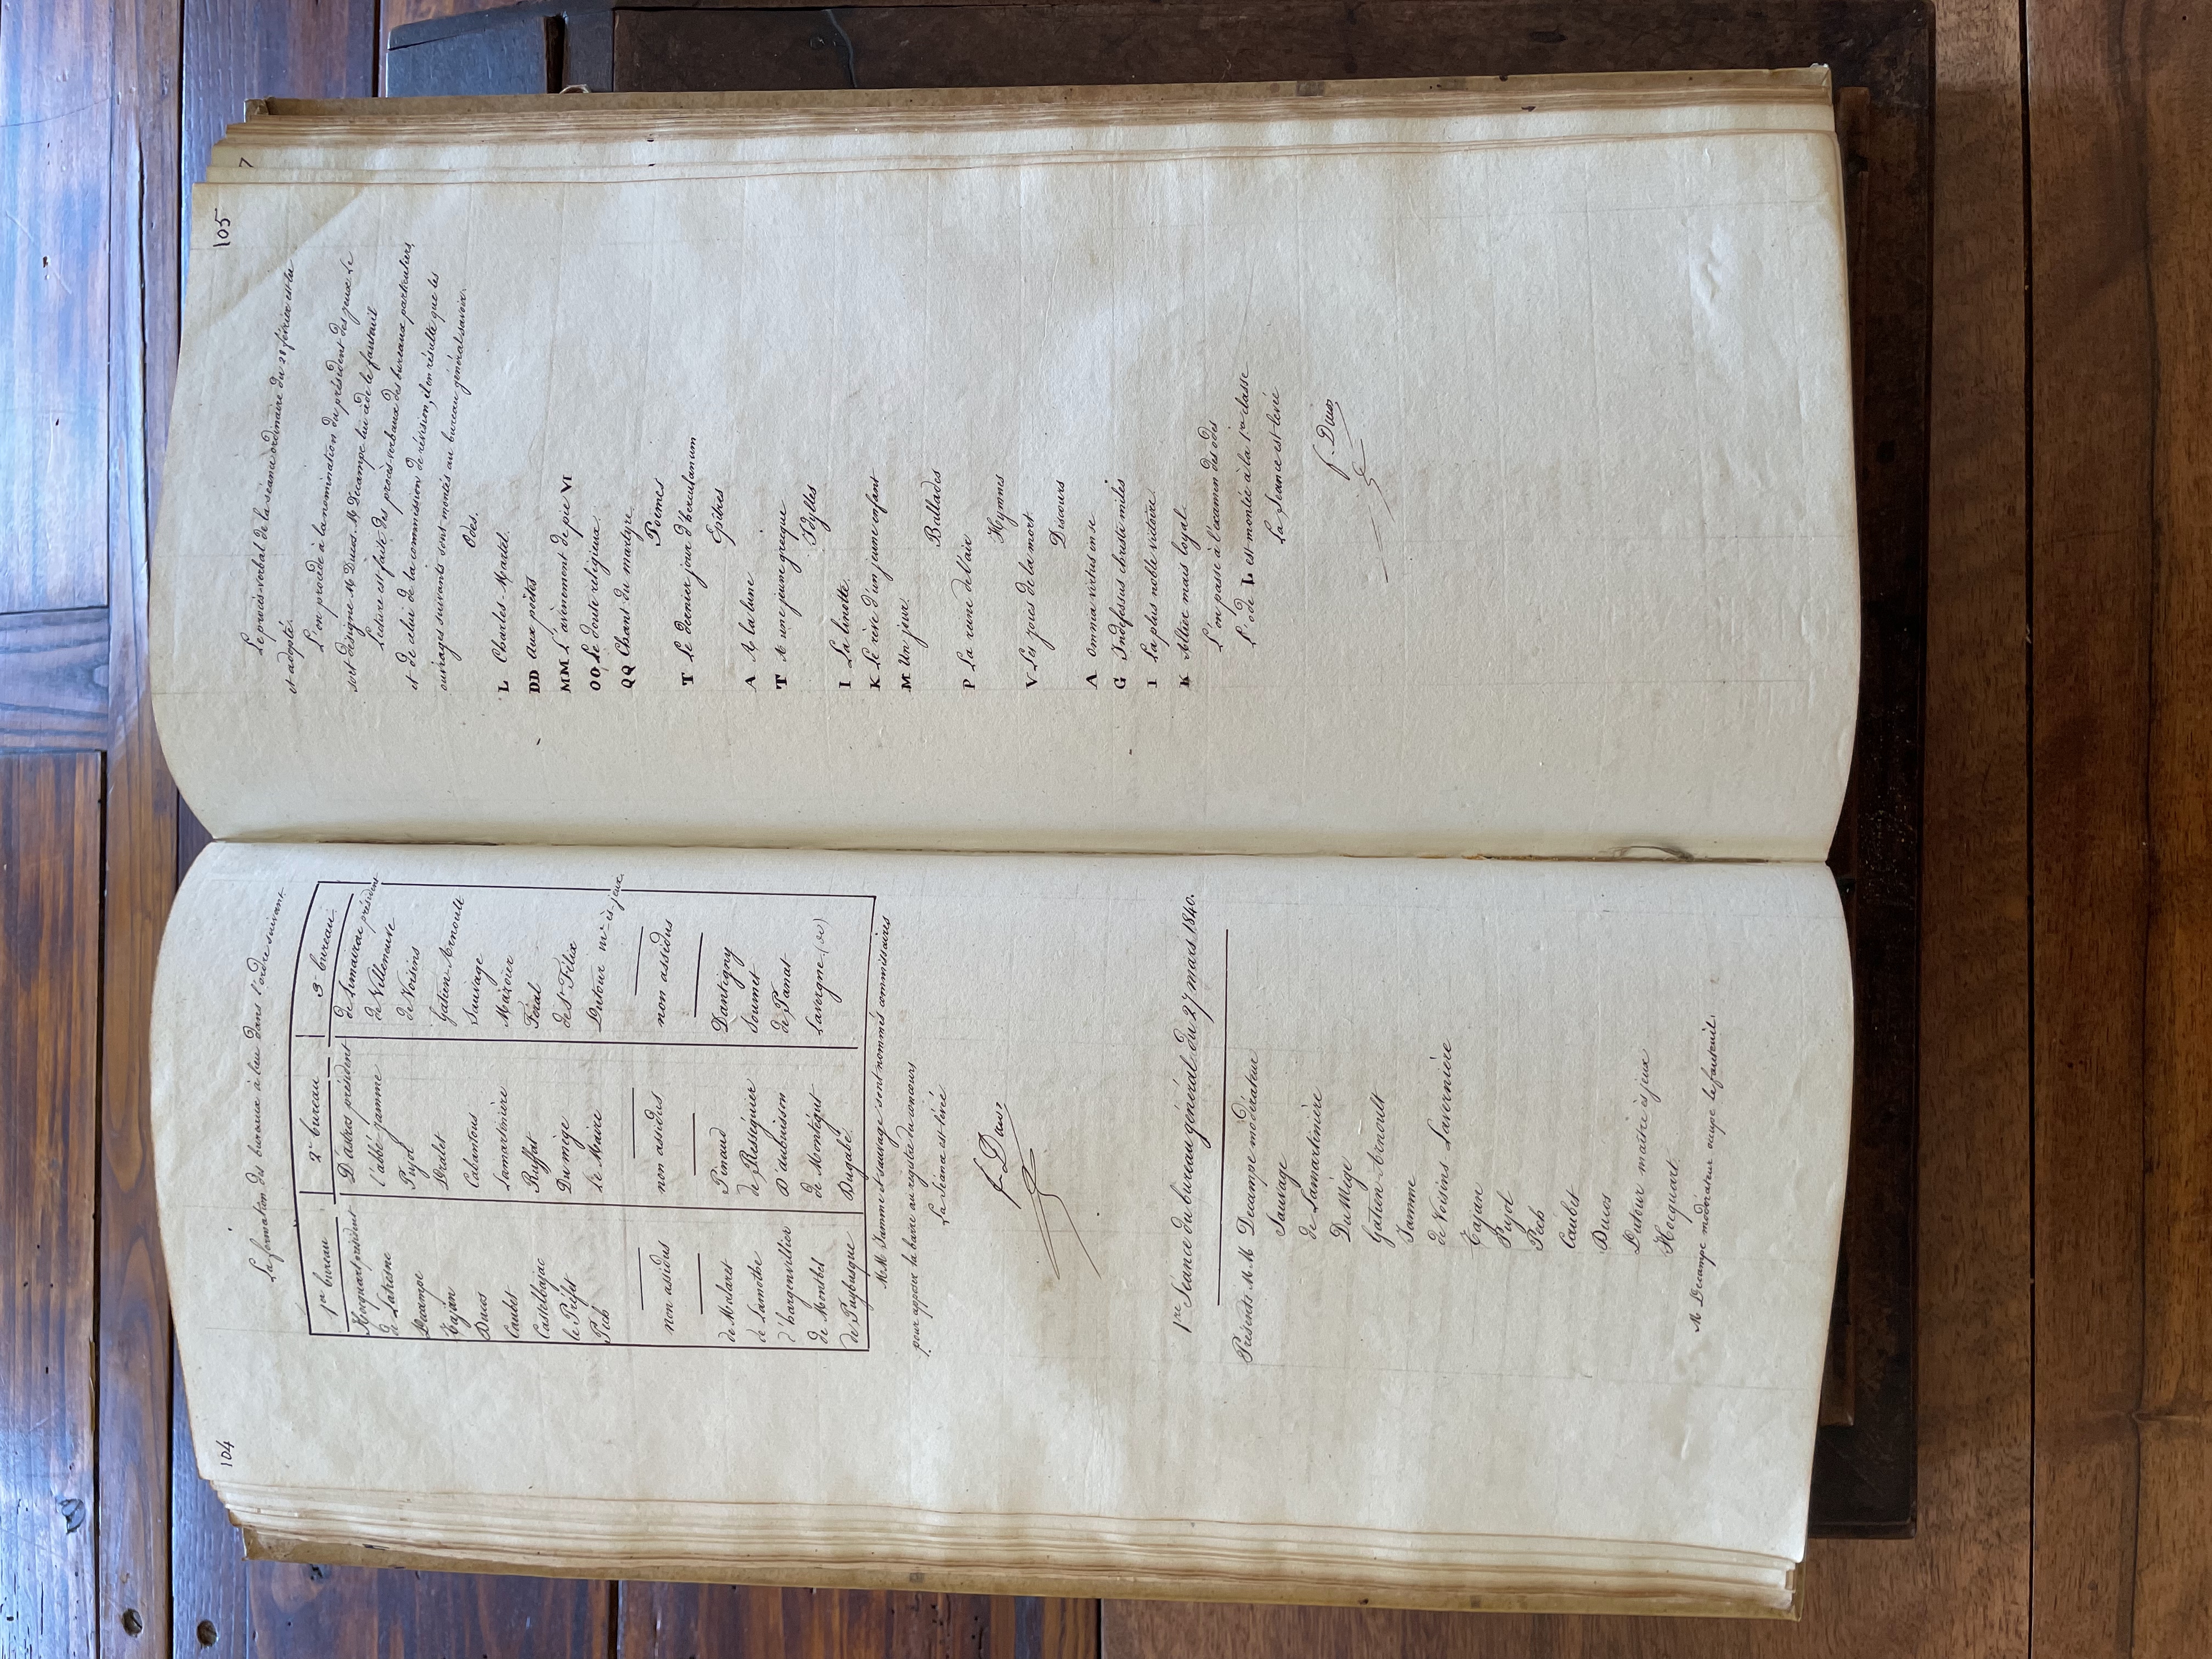 104
La formation des bureaux à lieu dans l'ordre suivant
1er bureau
Hocquart président
de Latresne
Decampe
Tajan
Ducos
Caubet
Castelbajac
le Préfet
Pech
non assidus
de Malaret
de Lamothe
d'hargenvillier
de Montbel
de Puybusque
2e bureau
D'astros président
l'abbé jamme
Pujol
Dralet
Cabantous
Lamartinière
Ruffat
Du mège
le Maire
non assidus
Pinaud
de Rességuier
D'aubuisson
de Montégut
Dugabé
3e bureau
de Limairac président
de Villeneuve
de Voisins
Gatien-Arnoult
Sauvage
Mazoier
Féral
de St Félix
Dutour mre ès-jeux
non assidus
Dantigny
Soumet
de Panat
Lavergne (de)
MM Jamme et Sauvage sont nommés commissaires
pour apposer la barre au registre du concours
La Séance est levée
f. Ducos
1re Séance du bureau général du 27 mars 1840.
Présents MM Decampe modérateur
Sauvage
de Lamartinière
Du Mège
Gatien-Arnoult
Jamme
de Voisins-Lavernière
Tajan
Pujol
Pech
Caubet
Ducos
Dutour maître ès jeux
Hocquart.
M Decampe modérateur occupe le fauteuil.
105
7
Le procès-verbal de la séance ordinaire du 28 février est lu
et adopté.
L'on procède à la nomination du président des jeux Le
sort désigne M Ducos. M Decampe lui cède le fauteuil
Lecture est faite des procès-verbaux des bureaux particuliers
et de celui de la commission de révision, il en résulte que les
ouvrages suivants sont montés au bureau général savoir.
Odes.
L Charles-Martel.
DD aux poëtes
MM L'avènement de pie VI
OO Le doute religieux.
QQ Chant du martyre
Poèmes
T Le dernier jour d'herculanum
Epîtres
A A la lune
T A une jeune grecque
Idylles
I La linotte.
K Le rêve d'un jeune enfant
M Un jeur.
Ballades
P La reine de l'air
Hymnes
V Les joies de la mort
Discours
A omnia virtus onse
G Indefessus christi miles
I La plus noble victoire.
K Altière mais loyal
L'on passe à l'examen des odes
L'ode L est montée à la 1re classe
La Séance est levée
f. Ducos